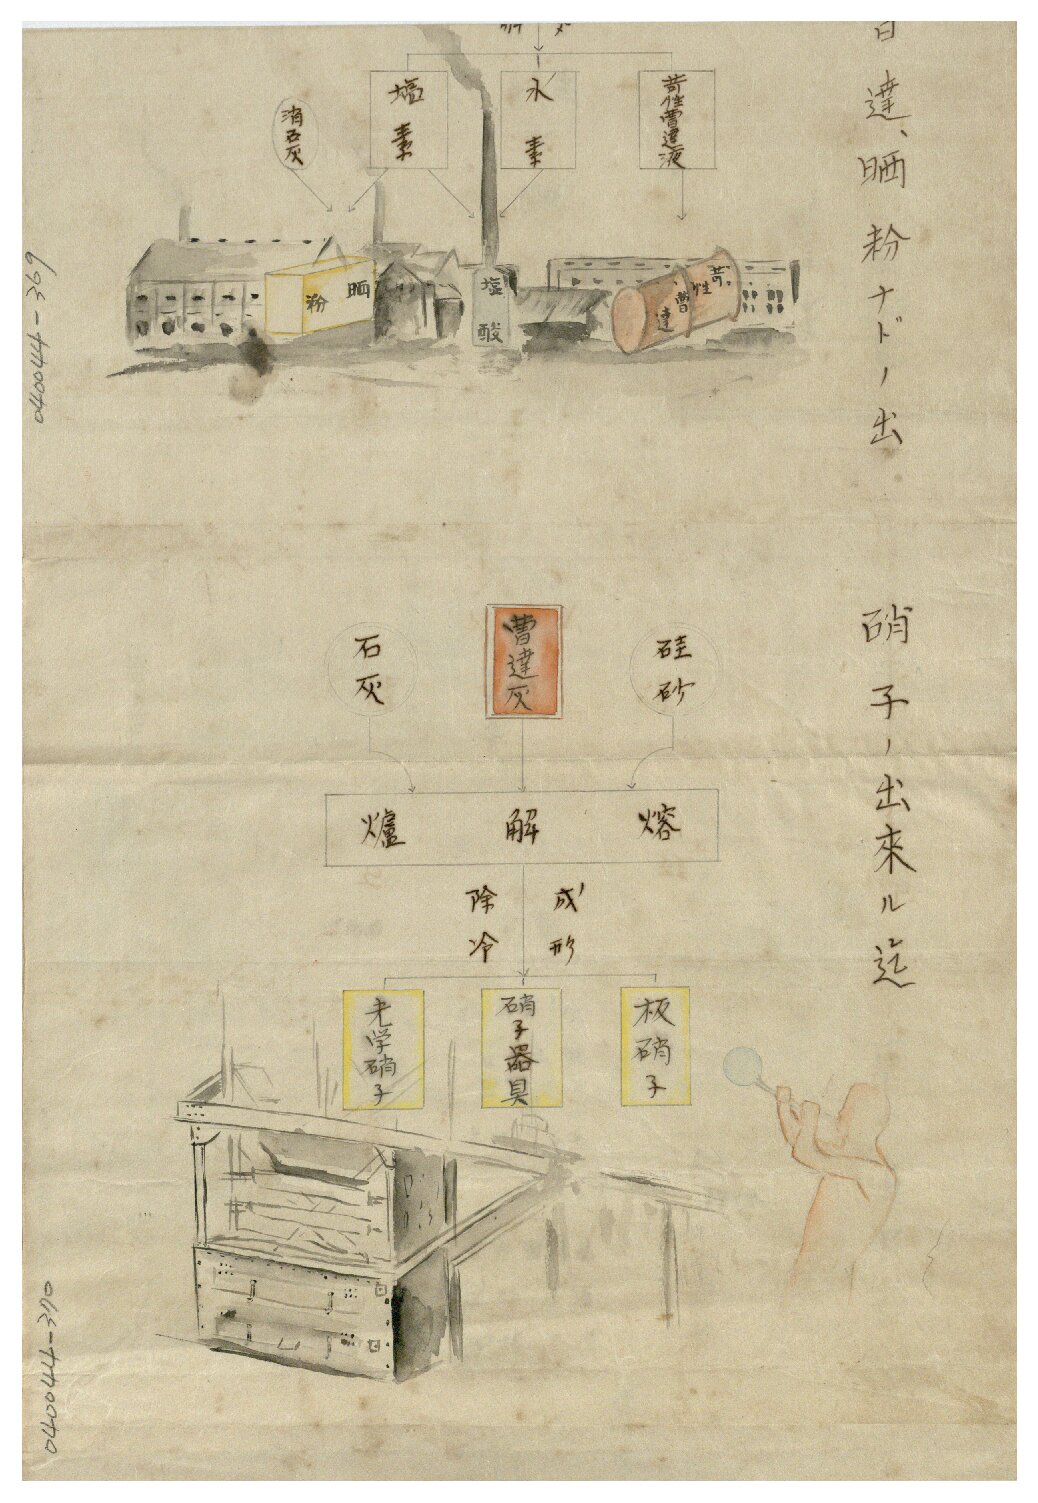 達、晒粉ナドノ出
苛性曹達液
水素
塩素
消石灰
苛性曹達
塩酸
晒粉
040044-369
硝子ノ出來ル迄
硅砂
曹達灰
石灰
熔解爐
成形
除冷
板硝子
硝子器具
光学硝子
040044-370